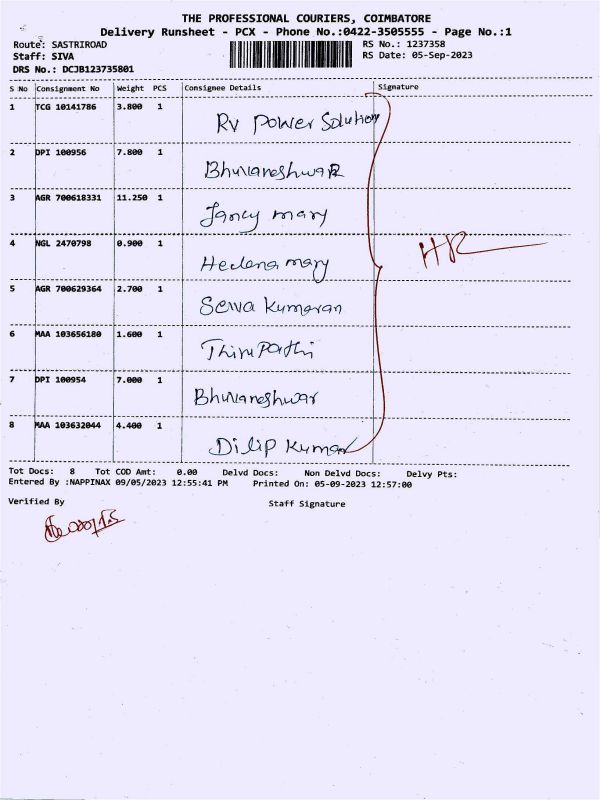 THE PROFESSIONAL COURIERS, COIMBATORE
Delivery Runsheet - PCX - Phone No.:0422-3505555 - Page No.:1
Route: SASTRIROAD RS No.: 1237358
Staff: SIVA RS Date: 05-Sep-2023
DRS No.: DCJB123735801
S No Consignment No Weight PCS Consignee Details Signature
1 TCG 10141786 3.800 1 RV Power Solution
2 DPI 100956 7.800 1 Bhuvaneshwar
3 AGR 700618331 11.250 1 Jancy mary
4 NGL 2470798 0.900 1 Heelena mary
HR
5 AGR 700629364 2.700 1 Selva Kumaran
6 MAA 103656180 1.600 1 Thirupathi
7 DPI 100954 7.000 1 Bhuvaneshwar
8 MAA 103632044 4.400 1 Dilip Kumar
Tot Docs: 8 Tot COD Amt: 0.00 Delvd Docs: Non Delvd Docs: Delvy Pts:
Entered By :NAPPINAX 09/05/2023 12:55:41 PM Printed On: 05-09-2023 12:57:00
Verified By Staff Signature